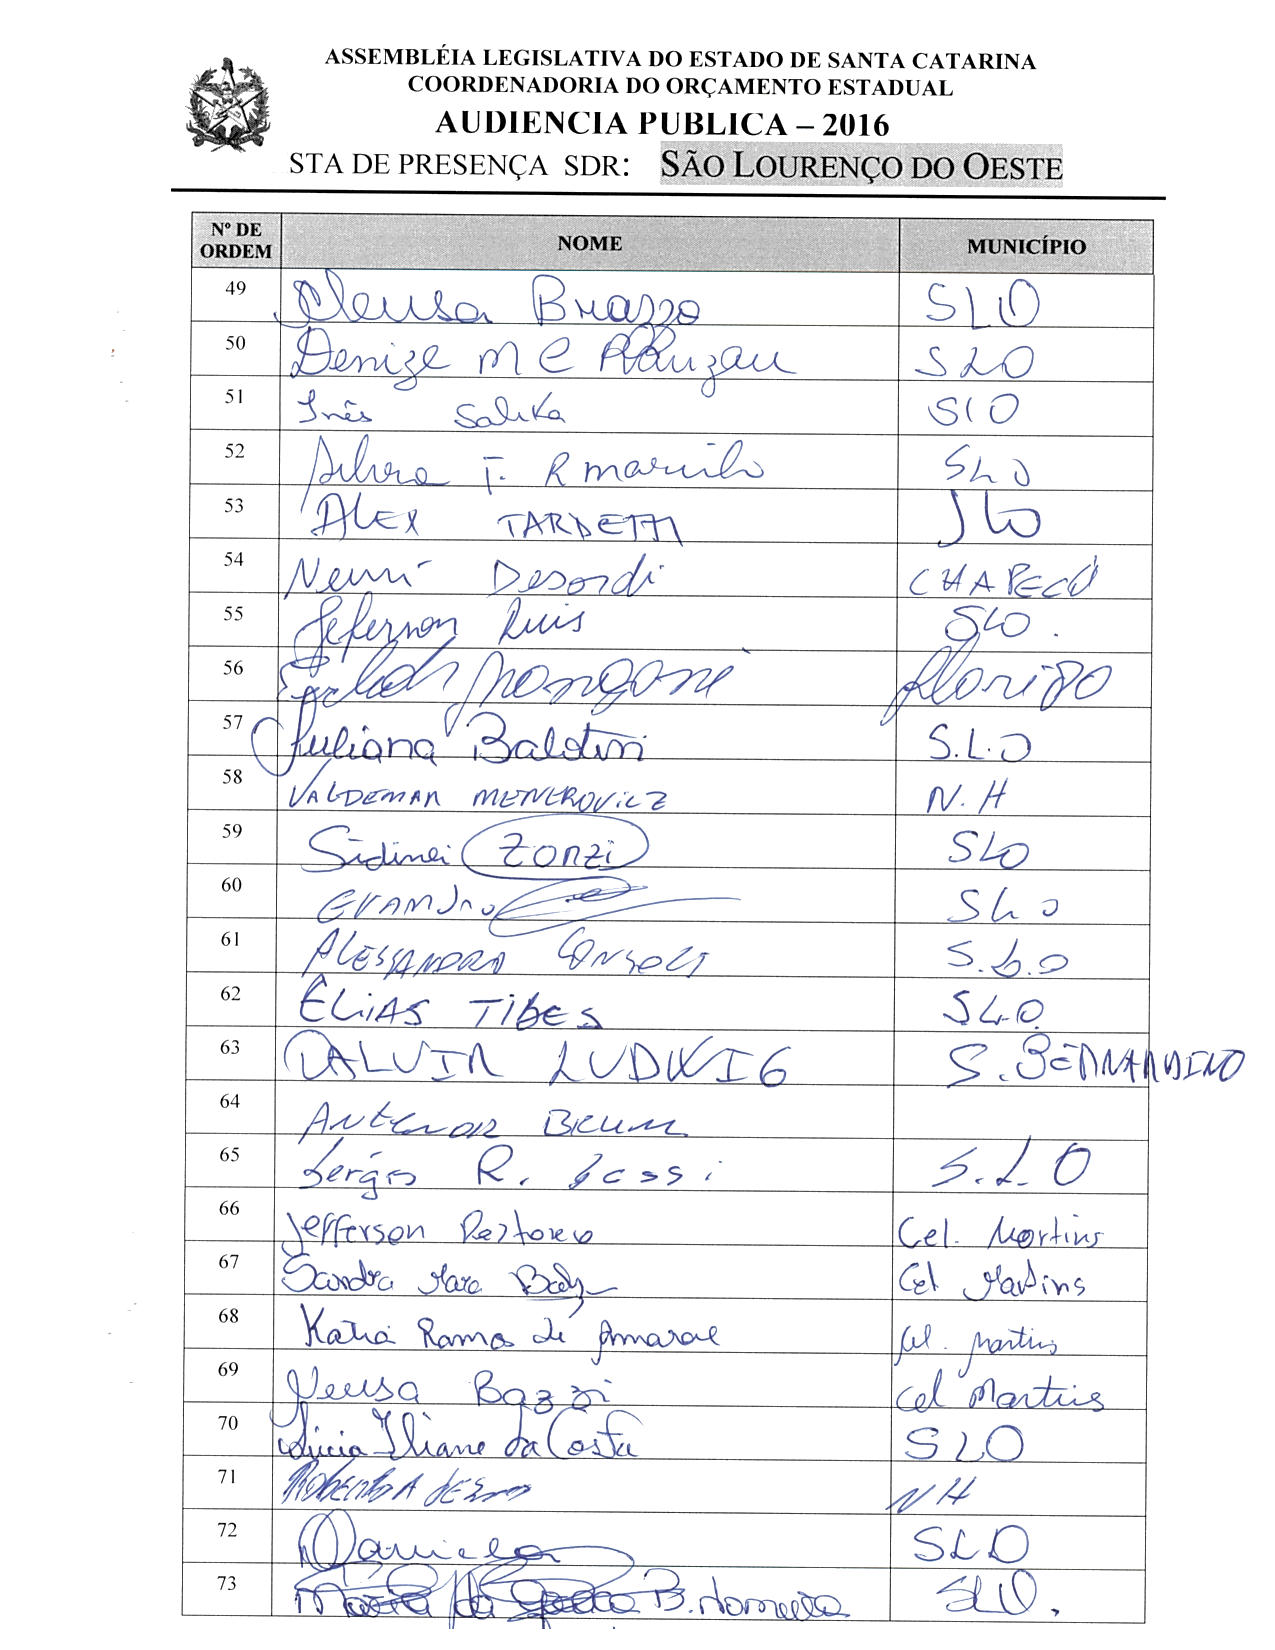 ASSEMBLÉIA LEGISLATIVA DO ESTADO DE SANTA CATARINA
COORDENADORIA DO ORÇAMENTO ESTADUAL
AUDIENCIA PUBLICA – 2016
STA DE PRESENÇA SDR: SÃO LOURENÇO DO OESTE
Nº DE ORDEM NOME MUNICÍPIO
49 Neusa SLO
50 Denize M C SLO
51 Inês Salika SLO
52 T. R SLO
53 ALEX TARDETTI SLO
54 Neuri Desordi CHAPECÓ
55 Jeferson Ruis SLO.
56
57 Juliana Baldin S.L.O
58 VALDEMAR MENEROVICZ N.H
59 Sidinei Zonzi SLO
60 EVANDRO SLO
61 ALESSANDRA CONSOLI S.L.O
62 ELIAS TIBES SLO
63 DALVIR LUDWIG S. BERNARDINO
64 ANTENOR
65 Sérgio R. S.L.O
66 Jefferson Cel. Martins
67 Sandra Mara Cel Martins
68 Katia Ramos de Amaral Cel. Martins
69 Neusa Bazzi Cel Martins
70 Lúcia Iliane da Costa SLO
71 NH
72 Daniela SLO
73 Maria B. SLO.